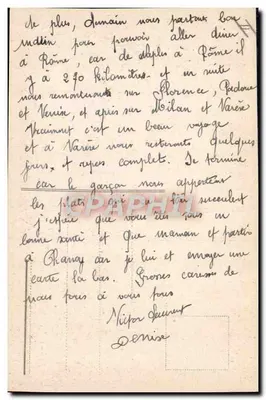 de plus, demain nous partons bon
matin pour pouvoir aller diner
à Rôme, car de Naples à Rôme il
y a 230 kilomètres et en suite
nous remonterons sur Florence, Padoue
et Venise, et après sur Milan et Varèse
Vraiment c'est un beau voyage
et à Varèse nous resterons quelques
jours, et repos complets. Je termine
car le garçon nous apporte
les plats
j'espère que vous êtes tous en
bonne santé et que maman est partie
à Changy car je lui ai envoyer une
carte là bas. Grosses caresses de
nous tous à vous tous
Victor Laurent
Denise